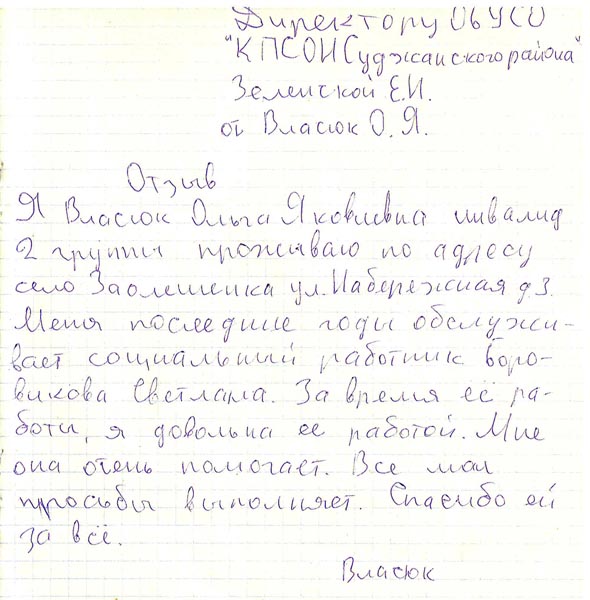 Директору ОБУСО
"КПСОН Суджанского района"
Зеленской Е.И.
от Власюк О.Я.
Отзыв
Я Власюк Ольга Яковлевна инвалид
2 группы проживаю по адресу
село Заолешенка ул. Набережная д 3.
Меня последние годы обслужи-
вает социальный работник Боро-
викова Светлана. За время её ра-
боты, я довольна ее работой. Мне
она очень помогает. Все мои
просьбы выполняет. Спасибо ей
за всё.
Власюк